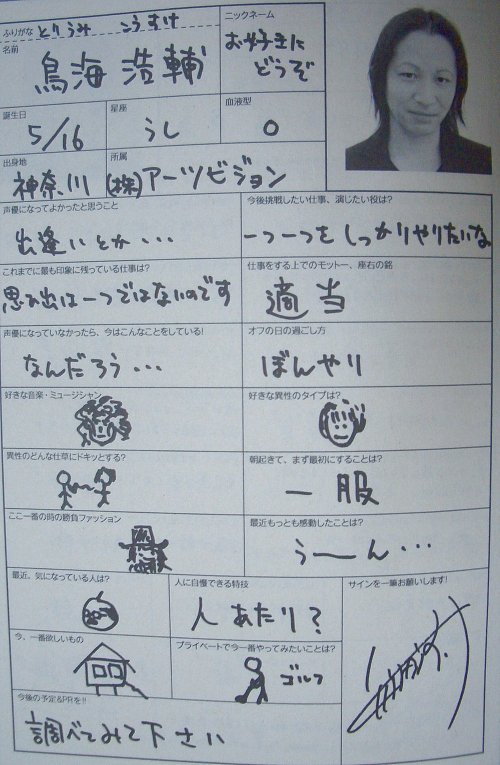 ふりがな とりうみ こうすけ
名前
鳥海 浩輔
ニックネーム
お好きに
どうぞ
誕生日
5/16
星座
うし
血液型
O
出身地
神奈川
所属
(株)アーツビジョン
声優になってよかったと思うこと
出逢いとか・・・
今後挑戦したい仕事、演じたい役は?
一つ一つを しっかりやりたいな
これまでに最も印象に残っている仕事は?
思い出は一つではないのです
仕事をする上でのモットー、座右の銘
適当
声優になっていなかったら、今はこんなことをしている!
なんだろう・・・
オフの日の過ごし方
ぼんやり
好きな音楽・ミュージシャン
好きな異性のタイプは?
異性のどんな仕草にドキッとする?
朝起きて、まず最初にすることは?
一服
ここ一番の時の勝負ファッション
最近もっとも感動したことは?
うーん・・・
最近、気になっている人は?
人に自慢できる特技
人あたり?
サインを一筆お願いします!
今、一番欲しいもの
プライベートで今一番やってみたいことは?
ゴルフ
今後の予定&PRを!!
調べてみて下さい